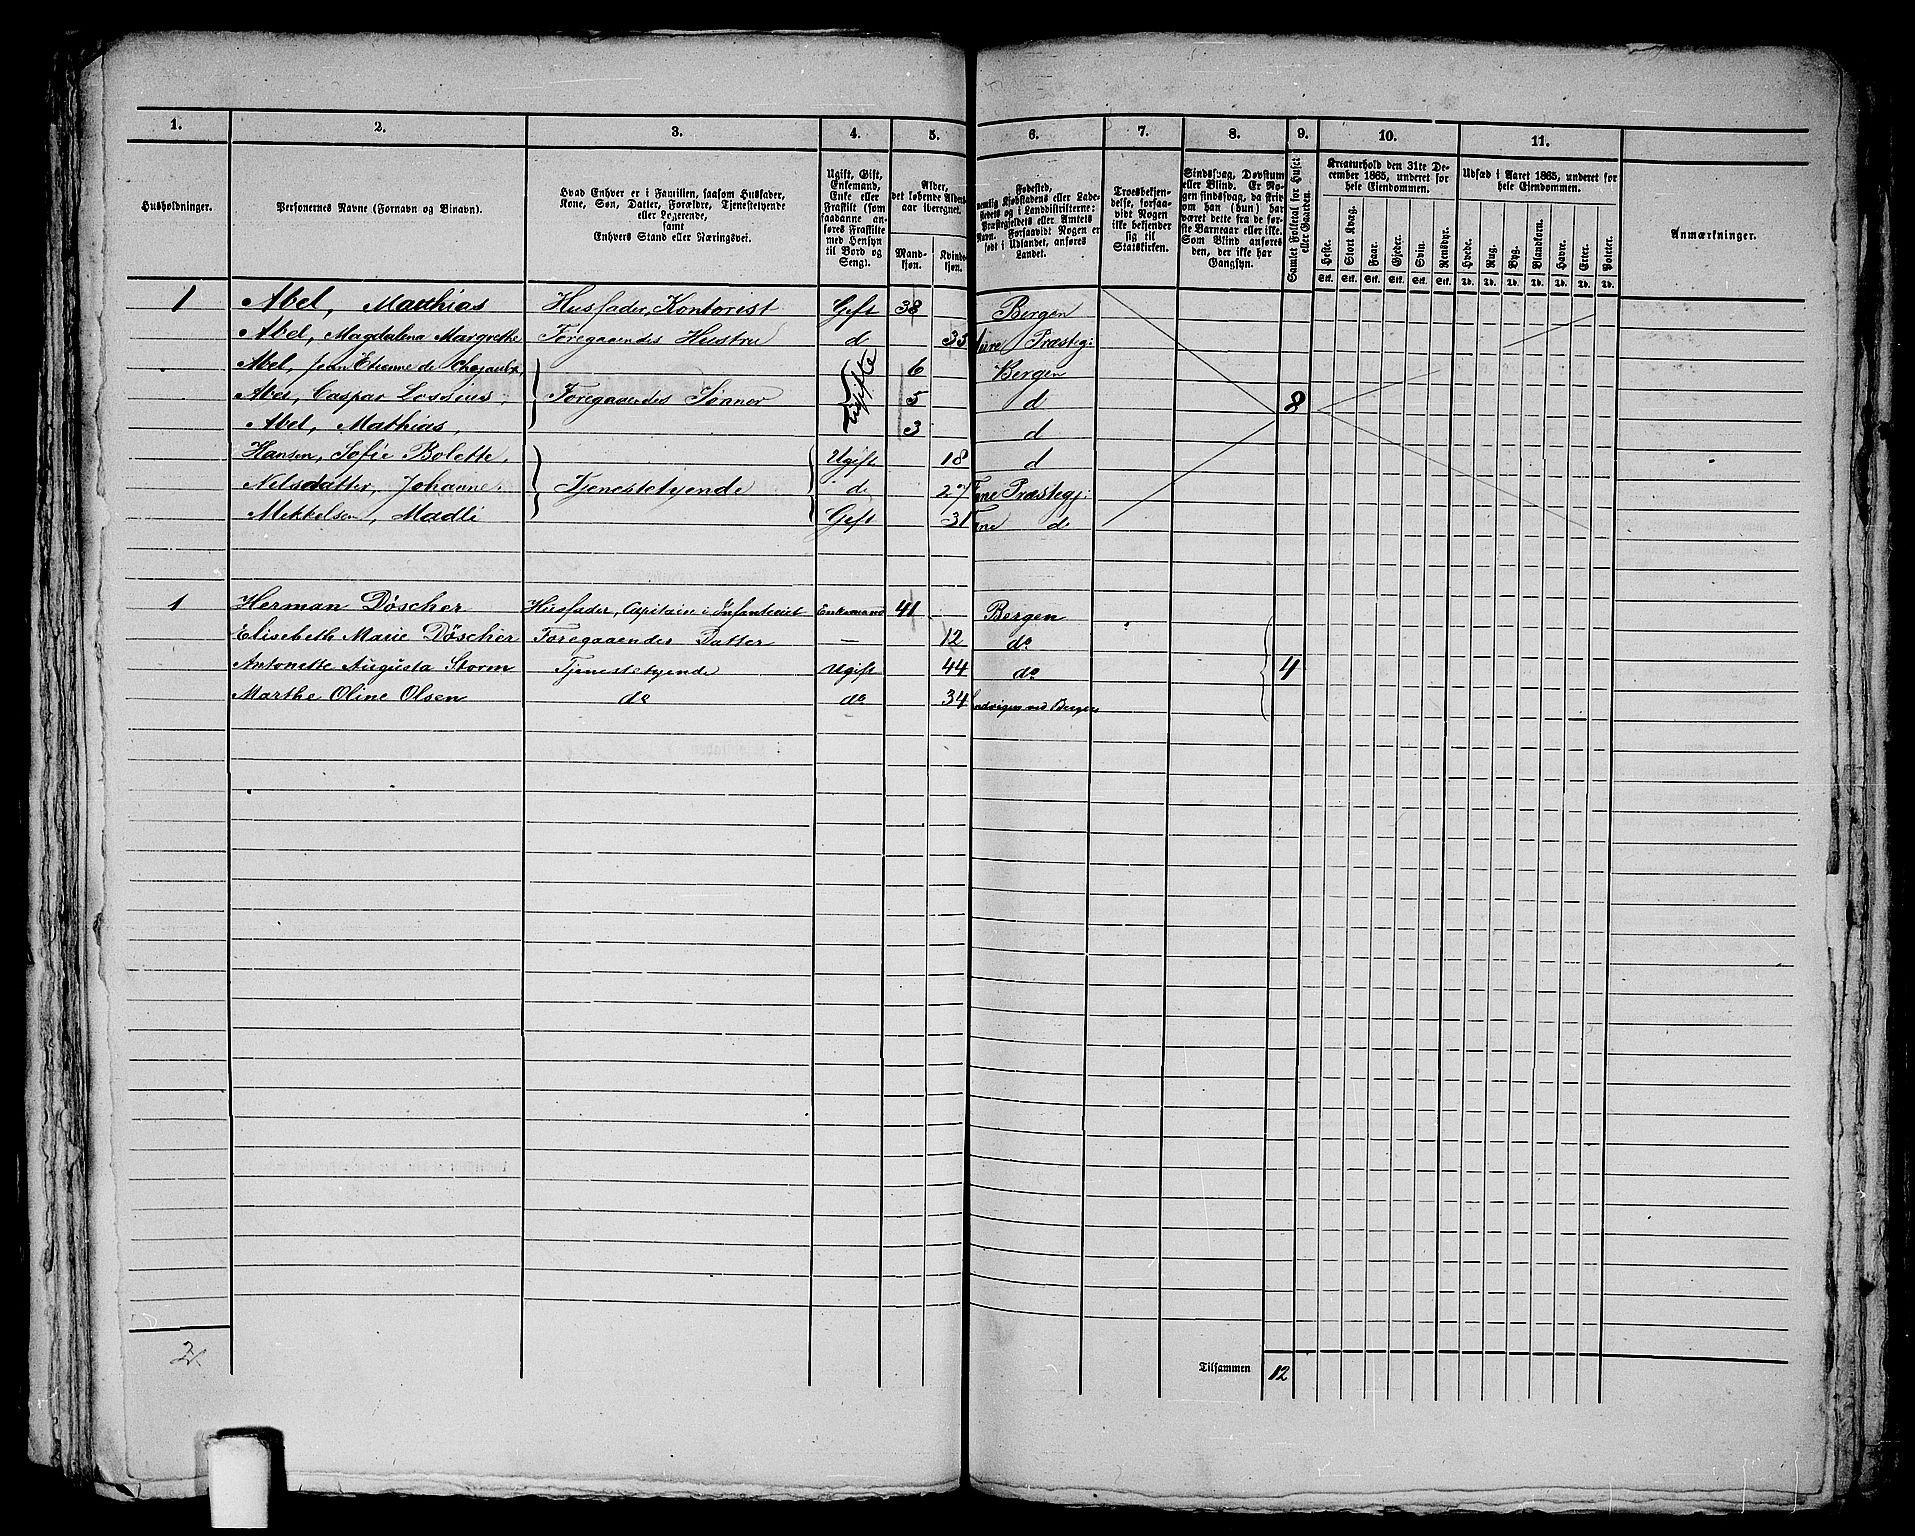 1. 2. 3. 4. 5. 6. 7. 8. 9. 10. 11.
Husholdninger.
Personernes Navne (Fornavn og Binavn).
Hvad Enhver er i Familien, saasom Husfader,
Kone, Søn, Datter, Forældre, Tjenestetyende
eller Logerende,
samt
Enhvers Stand eller Næringsvei.
Ugift, Gift,
Enkemand,
Enke eller
Fraskilt (som
saadanne an-
føres Fraskilte
med Hensyn
til Bord og
Seng).
Alder,
det løbende Alders-
aar iberegnet.
Mand-
kjøn.
Kvinde-
kjøn.
Fødested,
nemlig Kjøbstadens eller Lade-
stedets og i Landdistrikterne:
Præstegjeldets eller Amtets
Navn. Forsaavidt Nogen er
født i Udlandet, anføres
Landet.
Troesbekjen-
delse, forsaa-
vidt Nogen
ikke bekjender
sig til
Statskirken.
Sindssvag, Døvstum
eller Blind. Er No-
gen sindssvag, da skriv
om han (hun) har
været dette fra de før-
ste Barneaar eller ikke.
Som Blind anføres
den, der ikke har
Gangsyn.
Samlet Folketal for Huset
eller Gaarden.
Kreaturhold den 31te De-
cember 1865, underet for
hele Eiendommen.
Heste. Stort Kvæg. Faar. Gjeder. Svin. Rensdyr.
Stk. Stk. Stk. Stk. Stk. Stk.
Udsæd i Aaret 1865, underet for
hele Eiendommen.
Hvede. Rug. Byg. Blandkorn. Havre. Erter. Poteter.
Td. Td. Td. Td. Td. Td. Td.
Anmærkninger.
1 Abel, Matthias Husfader, Kontorist Gift 38 Bergen
Abel, Magdalena Margrethe Foregaaendes Hustru d 35 Præstegj:
Abel, Jean Etienne de 6 Bergen
Abel, Caspar Lossius, Foregaaendes Sønner Ugifte 5 d 8
Abel, Mathias, 3 d
Hansen, Sofie Bolette, Ugift 18 d
Nilsdatter, Johanne Tjenestetyende d 27 Fane Præstegj:
Mikkelsen, Madli Gift 31 Fane d
1 Herman Döscher Husfader, Capitain i Infanteriet Enkemand 41 Bergen
Elisebeth Marie Döscher Foregaaendes Datter — 12 do
Antonette Augusta Storm Tjenestetyende Ugift 44 do 4
Marthe Oline Olsen do do 34 Sandvigen ved Bergen
2.
Tilsammen 12